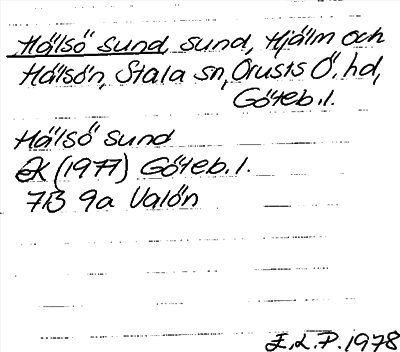 Hälsö sund, sund, Hjälm och
Hälsön, Stala sn, Orusts Ö. hd,
Göteb. l.
Hälsö sund
EK (1977) Göteb. l.
7B 9a Valön
E.L.P. 1978